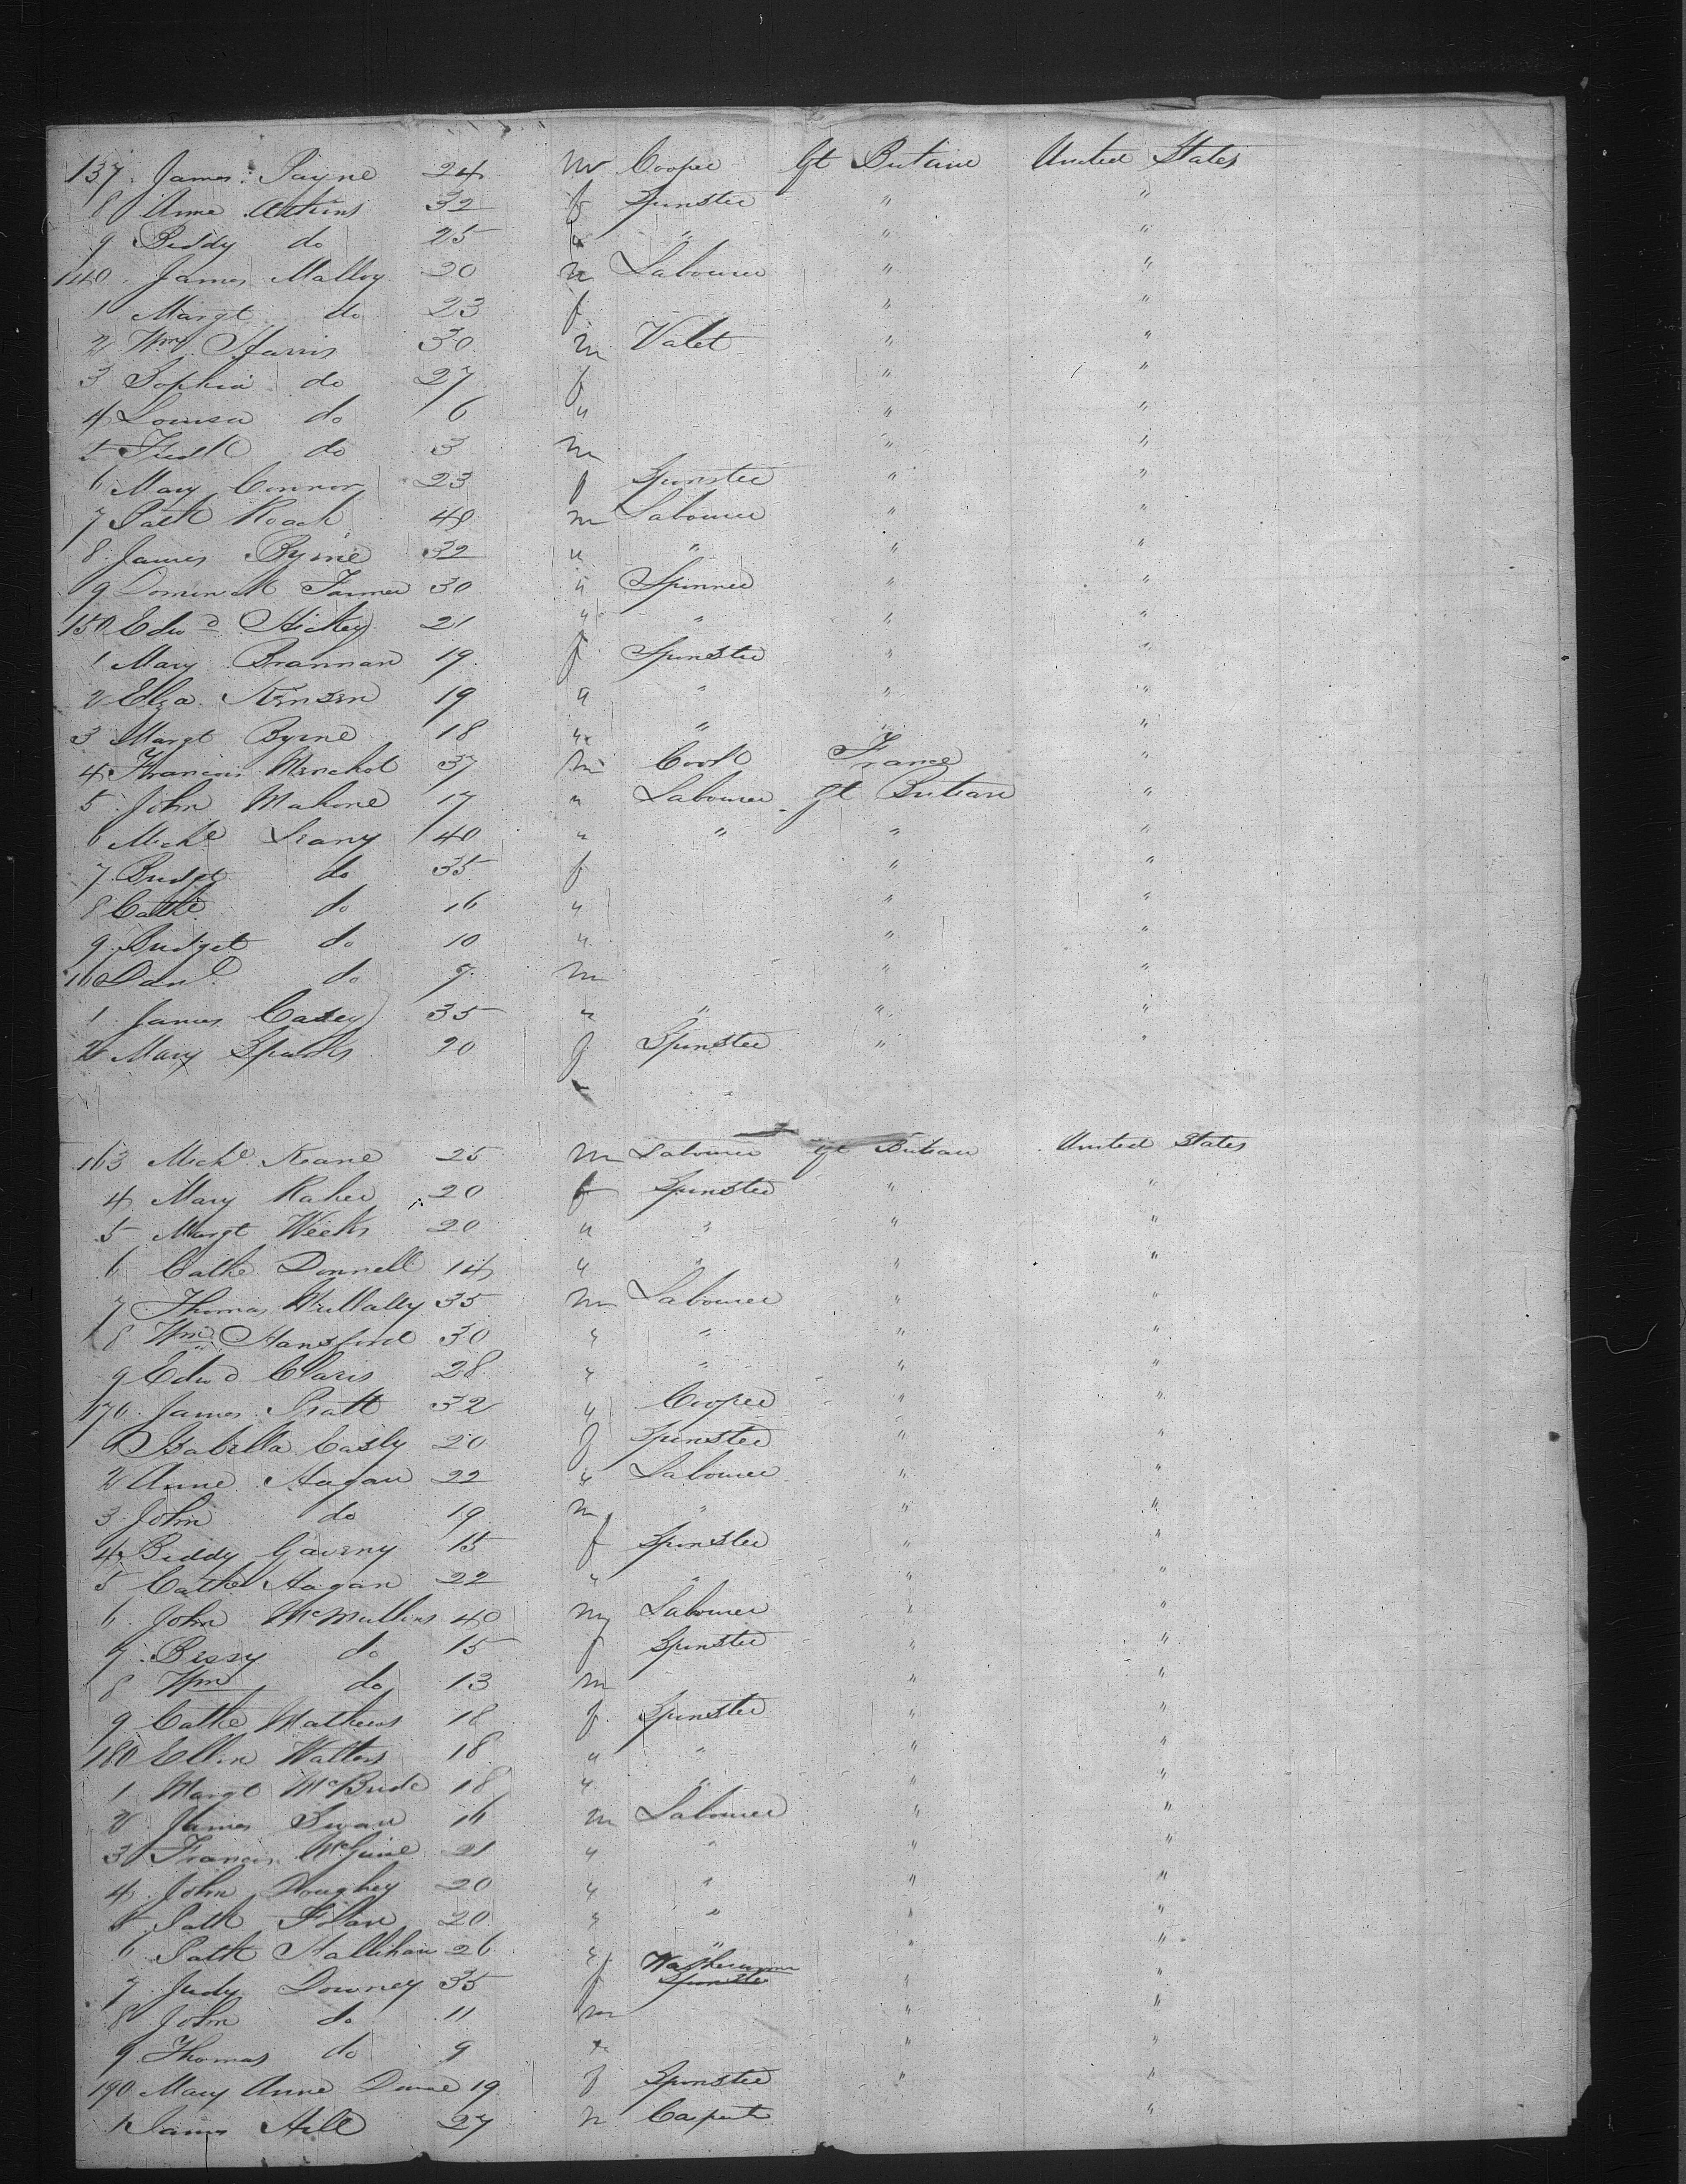 137 James Payne 24 m Cooper Gt Britain United States
8 Anne Atkins 32 f Spinster " "
9 Biddy do 25 " " " "
140 James Malloy 20 m Labourer " "
1 Margt do 23 f " "
2 Wm Harris 30 m Valet " "
3 Sophia do 27 f " "
4 Louisa do 6 " " "
5 Fredk do 3 m " "
6 Mary Connor 23 f Spinster " "
7 Patk Roach 40 m Labourer " "
8 James Byrne 32 " " " "
9 Dominick Farmer 30 " Spinner " "
150 Edwd Hickey 21 " " " "
1 Mary Brannan 19 f Spinster " "
2 Elza 19 " " " "
3 Margt Byrne 18 " " " "
4 Francois 37 m Cook France "
5 John Mahone 17 " Labourer Gt Britain "
6 Michl Leany 40 " " " "
7 Bridgt do 35 f " "
8 Cathe do 16 " " "
9 Bridget do 10 " " "
16 Danl do 9 m " "
1 James Casey 35 " " " "
2 Mary Sparks 20 f Spinster " "
163 Michl Keane 25 m Labourer Gt Britain United States
4 Mary Raher 20 f Spinster " "
5 Margt Weeks 20 " " " "
6 Cathe Donnell 14 " " " "
7 Thomas Mullally 35 m Labourer " "
8 Wm Hansford 30 " " " "
9 Edwd Claris 28 " " " "
170 James Pratt 32 " Cooper " "
1 Isabella Casly 20 f Spinster " "
2 Anne Hagan 22 " Labourer " "
3 John do 19 m " " "
4 Biddy Gaverny 15 f Spinster " "
5 Cathe Hagan 22 " " " "
6 John McMullins 40 m Labourer " "
7 Bessy do 15 f Spinster " "
8 Wm do 13 m " "
9 Cathe Mathews 18 f Spinster " "
180 Ellen Walters 18 " " " "
1 Margt McBride 18 " " " "
2 James Swan 16 m Labourer " "
3 Francis McGuire 21 " " " "
4 John Doughey 20 " " " "
5 Patk Folan 20 " " " "
6 Patk Hallihan 26 " " " "
7 Judy Downey 35 f Washerwoman Spinster " "
8 John do 11 m " "
9 Thomas do 9 " " "
190 Mary Anne Dunne 19 f Spinster " "
1 James Hill 27 m Carpent "